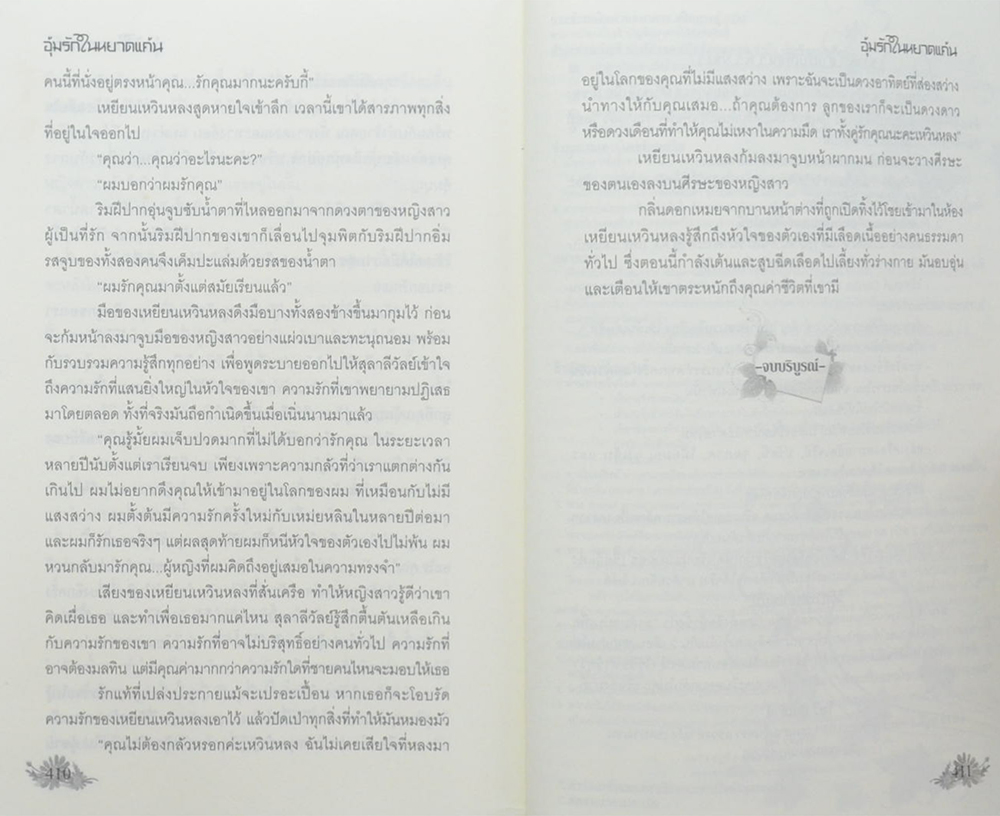 อุ้มรักในหยาดแค้น
คนนี้ที่นั่งอยู่ตรงหน้าคุณ...รักคุณมากนะครับกี้”
เหยียนเหวินหลงสูดหายใจเข้าลึก เวลานี้เขาได้สารภาพทุกสิ่ง
ที่อยู่ในใจออกไป
“คุณว่า...คุณว่าอะไรนะคะ?”
“ผมบอกว่าผมรักคุณ”
ริมฝีปากอุ่นจูบซับน้ำตาที่ไหลออกมาจากดวงตาของหญิงสาว
ผู้เป็นที่รัก จากนั้นริมฝีปากของเขาก็เลื่อนไปจุมพิตกับริมฝีปากอิ่ม
รสจูบของทั้งสองคนจึงเค็มปะแล่มด้วยรสของน้ำตา
“ผมรักคุณมาตั้งแต่สมัยเรียนแล้ว”
มือของเหยียนเหวินหลงดึงมือบางทั้งสองข้างขึ้นมากุมไว้ ก่อน
จะก้มหน้าลงมาจูบมือของหญิงสาวอย่างแผ่วเบาและทะนุถนอม พร้อม
กับรวบรวมความรู้สึกทุกอย่าง เพื่อพูดระบายออกไปให้สุลาลีวัลย์เข้าใจ
ถึงความรักที่แสนยิ่งใหญ่ในหัวใจของเขา ความรักที่เขาพยายามปฏิเสธ
มาโดยตลอด ทั้งที่จริงมันถือกำเนิดขึ้นเมื่อเนิ่นนานมาแล้ว
“คุณรู้มั้ยผมเจ็บปวดมากที่ไม่ได้บอกว่ารักคุณ ในระยะเวลา
หลายปีนับตั้งแต่เราเรียนจบ เพียงเพราะความกลัวที่ว่าเราแตกต่างกัน
เกินไป ผมไม่อยากดึงคุณให้เข้ามาอยู่ในโลกของผม ที่เหมือนกับไม่มี
แสงสว่าง ผมตั้งต้นมีความรักครั้งใหม่กับเหม่ยหลินในหลายปีต่อมา
และผมก็รักเธอจริงๆ แต่ผลสุดท้ายผมก็หนีหัวใจของตัวเองไปไม่พ้น ผม
หวนกลับมารักคุณ...ผู้หญิงที่ผมคิดถึงอยู่เสมอในความทรงจำ”
เสียงของเหยียนเหวินหลงที่สั่นเครือ ทำให้หญิงสาวรู้ดีว่าเขา
คิดเผื่อเธอ และทำเพื่อเธอมากแค่ไหน สุลาลีวัลย์รู้สึกตื้นตันเหลือเกิน
กับความรักของเขา ความรักที่อาจไม่บริสุทธิ์อย่างคนทั่วไป ความรักที่
อาจต้องมลทิน แต่มีคุณค่ามากกว่าความรักใดที่ชายคนไหนจะมอบให้เธอ
รักแท้ที่เปล่งประกายแม้จะเปรอะเปื้อน หากเธอก็จะโอบรัด
ความรักของเหยียนเหวินหลงเอาไว้ แล้วปัดเป่าทุกสิ่งที่ทำให้มันหมองมัว
“คุณไม่ต้องกลัวหรอกค่ะเหวินหลง ฉันไม่เคยเสียใจที่หลงมา
410
อุ้มรักในหยาดแค้น
อยู่ในโลกของคุณที่ไม่มีแสงสว่าง เพราะฉันจะเป็นดวงอาทิตย์ที่ส่องสว่าง
นำทางให้กับคุณเสมอ...ถ้าคุณต้องการ ลูกของเราก็จะเป็นดวงดาว
หรือดวงเดือนที่ทำให้คุณไม่เหงาในความมืด เราทั้งคู่รักคุณนะคะเหวินหลง”
เหยียนเหวินหลงก้มลงมาจูบหน้าผากมน ก่อนจะวางศีรษะ
ของตนเองลงบนศีรษะของหญิงสาว
กลิ่นดอกเหมยจากบานหน้าต่างที่ถูกเปิดทิ้งไว้โชยเข้ามาในห้อง
เหยียนเหวินหลงรู้สึกถึงหัวใจของตัวเองที่มีเลือดเนื้ออย่างคนธรรมดา
ทั่วไป ซึ่งตอนนี้กำลังเต้นและสูบฉีดเลือดไปเลี้ยงทั่วร่างกาย มันอบอุ่น
และเตือนให้เขาตระหนักถึงคุณค่าชีวิตที่เขามี
-จบบริบูรณ์-
411